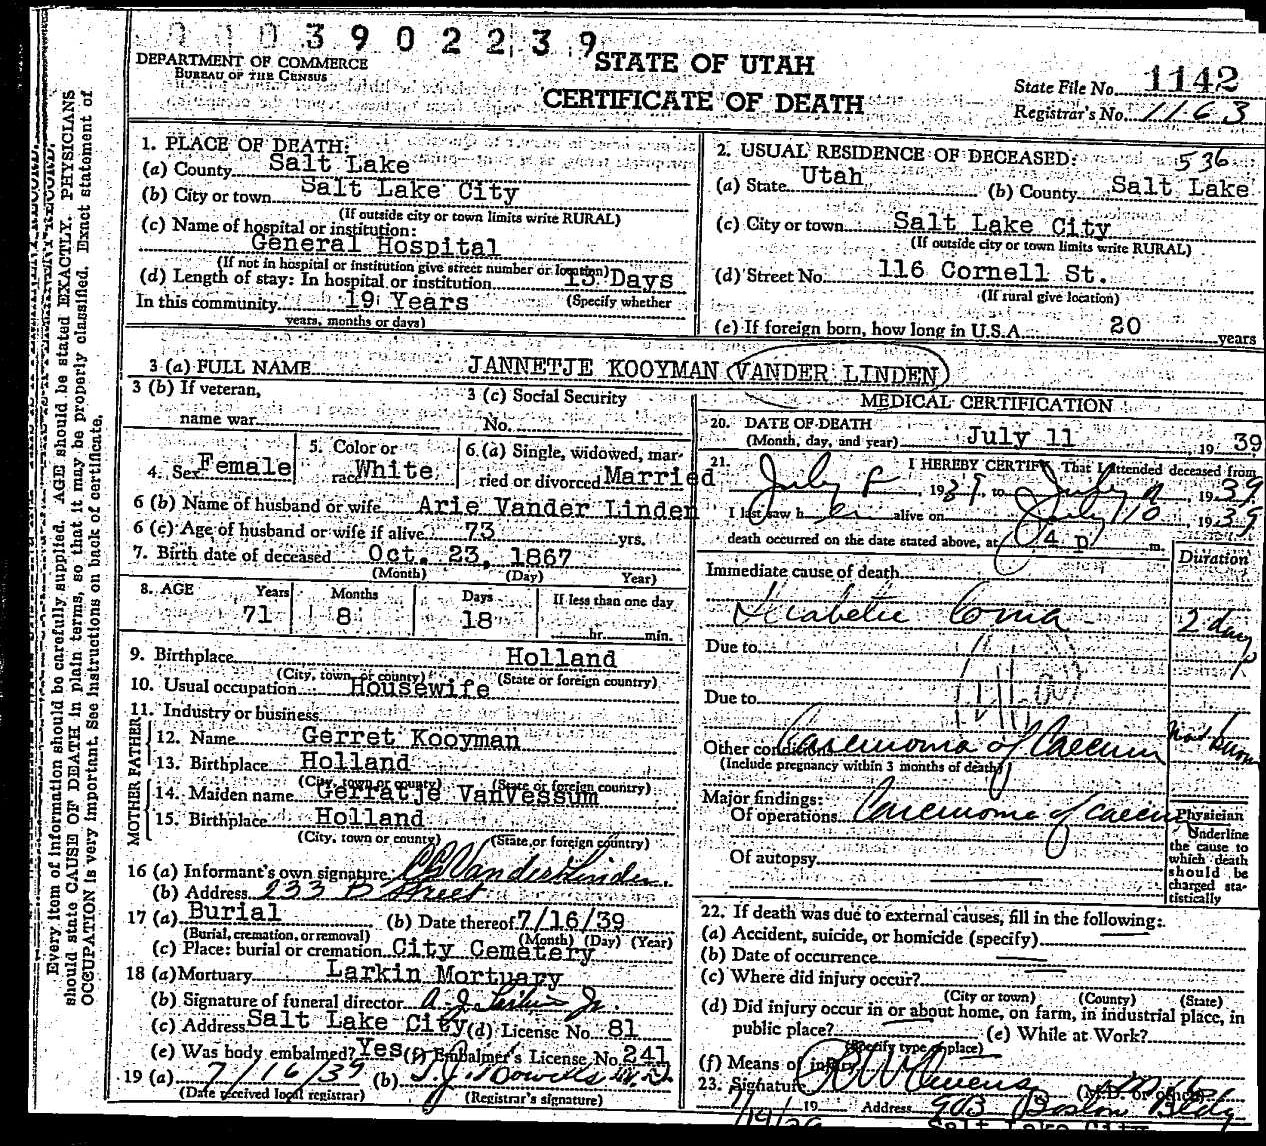 0 1 0 3 9 0 2 2 3 9
DEPARTMENT OF COMMERCE
BUREAU OF THE CENSUS
STATE OF UTAH
CERTIFICATE OF DEATH
State File No. 1142
Registrar's No. 1163
Every item of information should be carefully supplied. AGE should be stated EXACTLY. PHYSICIANS
should state CAUSE OF DEATH in plain terms, so that it may be properly classified. Exact statement of
OCCUPATION is very important. See instructions on back of certificate.
1. PLACE OF DEATH:
(a) County Salt Lake
(b) City or town Salt Lake City
(If outside city or town limits write RURAL)
(c) Name of hospital or institution:
General Hospital
(If not in hospital or institution give street number or location)
(d) Length of stay: In hospital or institution 13 Days
In this community 19 Years (Specify whether
years, months or days)
2. USUAL RESIDENCE OF DECEASED: 536
(a) State Utah (b) County Salt Lake
(c) City or town Salt Lake City
(If outside city or town limits write RURAL)
(d) Street No. 116 Cornell St.
(If rural give location)
(e) If foreign born, how long in U.S.A. 20 years
3 (a) FULL NAME JANNETJE KOOYMAN (VANDER LINDEN)
3 (b) If veteran,
name war
3 (c) Social Security
No.
4. Sex Female
5. Color or
race White
6 (a) Single, widowed, mar-
ried or divorced Married
6 (b) Name of husband or wife Arie Vander Linden
6 (c) Age of husband or wife if alive 73 yrs.
7. Birth date of deceased Oct. 23, 1867
(Month) (Day) Year)
8. AGE Years Months Days If less than one day
71 8 18 hr. min.
9. Birthplace Holland
(City, town or county) (State or foreign country)
10. Usual occupation Housewife
11. Industry or business
FATHER
12. Name Gerret Kooyman
13. Birthplace Holland
(City, town or county) (State or foreign country)
MOTHER
14. Maiden name Gerratje VanVessum
15. Birthplace Holland
(City, town or county) (State, or foreign country)
16 (a) Informant's own signature VanderLinden
(b) Address 233 B Street
17 (a) Burial (b) Date thereof 7/16/39
(Burial, cremation, or removal) (Month) (Day) (Year)
(c) Place: burial or cremation City Cemetery
18 (a) Mortuary Larkin Mortuary
(b) Signature of funeral director A. J. Larkin Jr.
(c) Address Salt Lake City (d) License No. 81
(e) Was body embalmed? Yes (f) Embalmer's License No. 241
19 (a) 7/16/39 (b) M.D.
(Date received local registrar) (Registrar's signature)
MEDICAL CERTIFICATION
20. DATE OF DEATH
(Month, day, and year) July 11, 1939
21. I HEREBY CERTIFY That I attended deceased from
July 1939, to July 11, 1939
I last saw h er alive on July 10, 1939
death occurred on the date stated above, at 4 p m.
Duration
Immediate cause of death
Diabetic Coma 2 days
Due to
Due to
Other conditions Carcinoma of Caecum
(Include pregnancy within 3 months of death)
Major findings:
Of operations Carcinoma of Caecum
Of autopsy
Physician
Underline
the cause to
which death
should be
charged sta-
tistically
22. If death was due to external causes, fill in the following:
(a) Accident, suicide, or homicide (specify)
(b) Date of occurrence
(c) Where did injury occur?
(City or town) (County) (State)
(d) Did injury occur in or about home, on farm, in industrial place, in
public place? (e) While at Work?
(Specify type of place)
(f) Means of injury
23. Signature R W Owens (M.D. or other)
7/14/39 19 Address 903 Boston Bldg
Salt Lake City